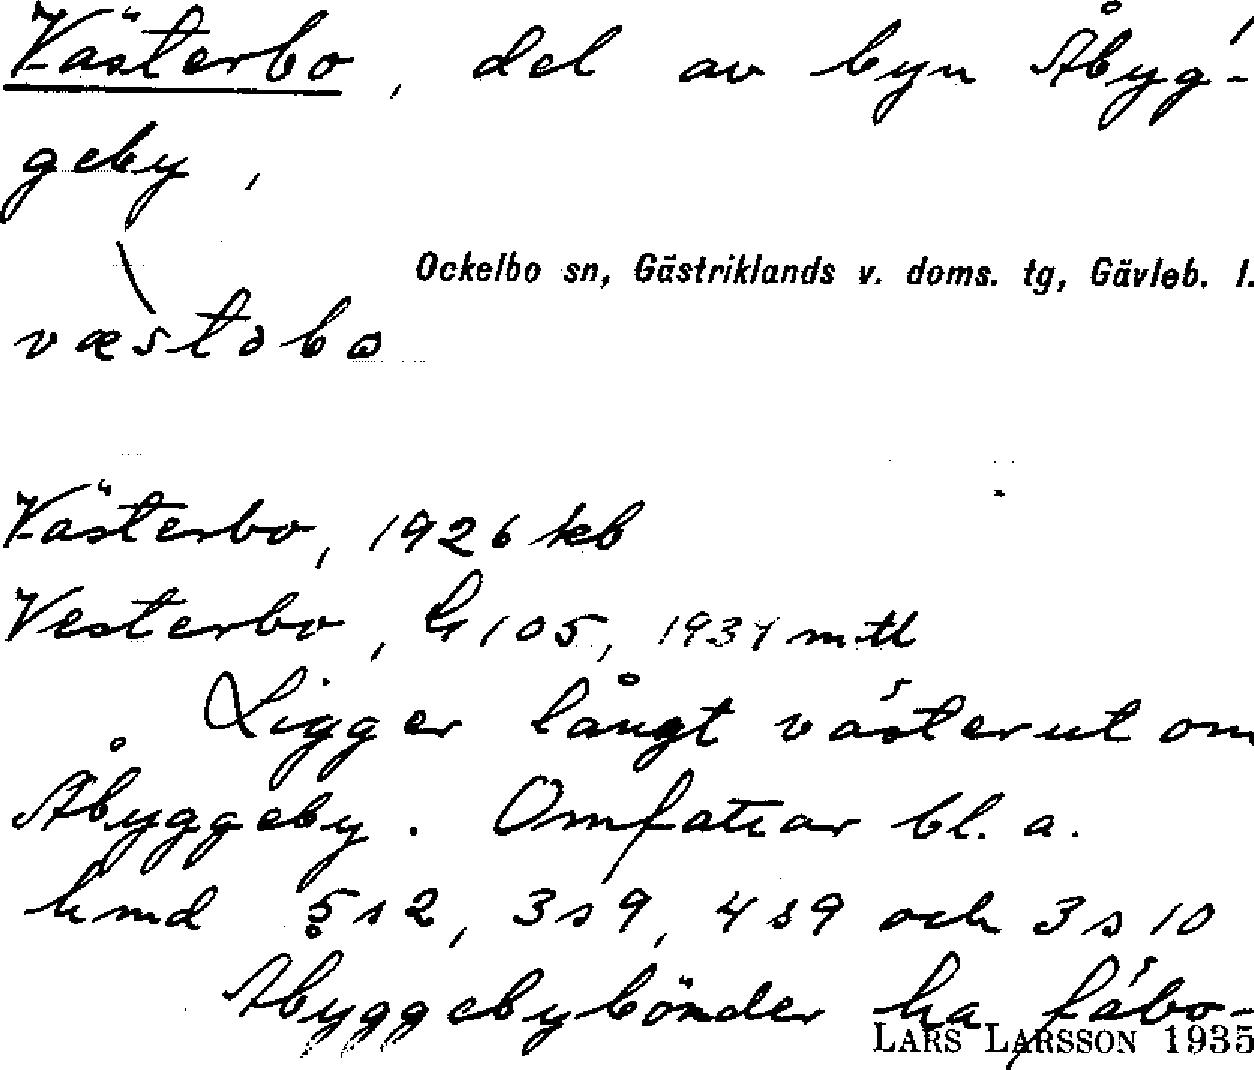 Västerbo, del av byn Åbyg-
geby,
Ockelbo sn, Gästriklands v. doms. tg, Gävleb. l.
væstəbo
Västerbo, 1926 kb
Vesterbo, G 105, 1934 mtl
Ligger långt västerut om
Åbyggeby. Omfattar bl. a.
hmd 5 s 2, 3 s 9, 4 s 9 och 3 s 10
Åbyggebybönder ha fäbo-
LARS LARSSON 1935